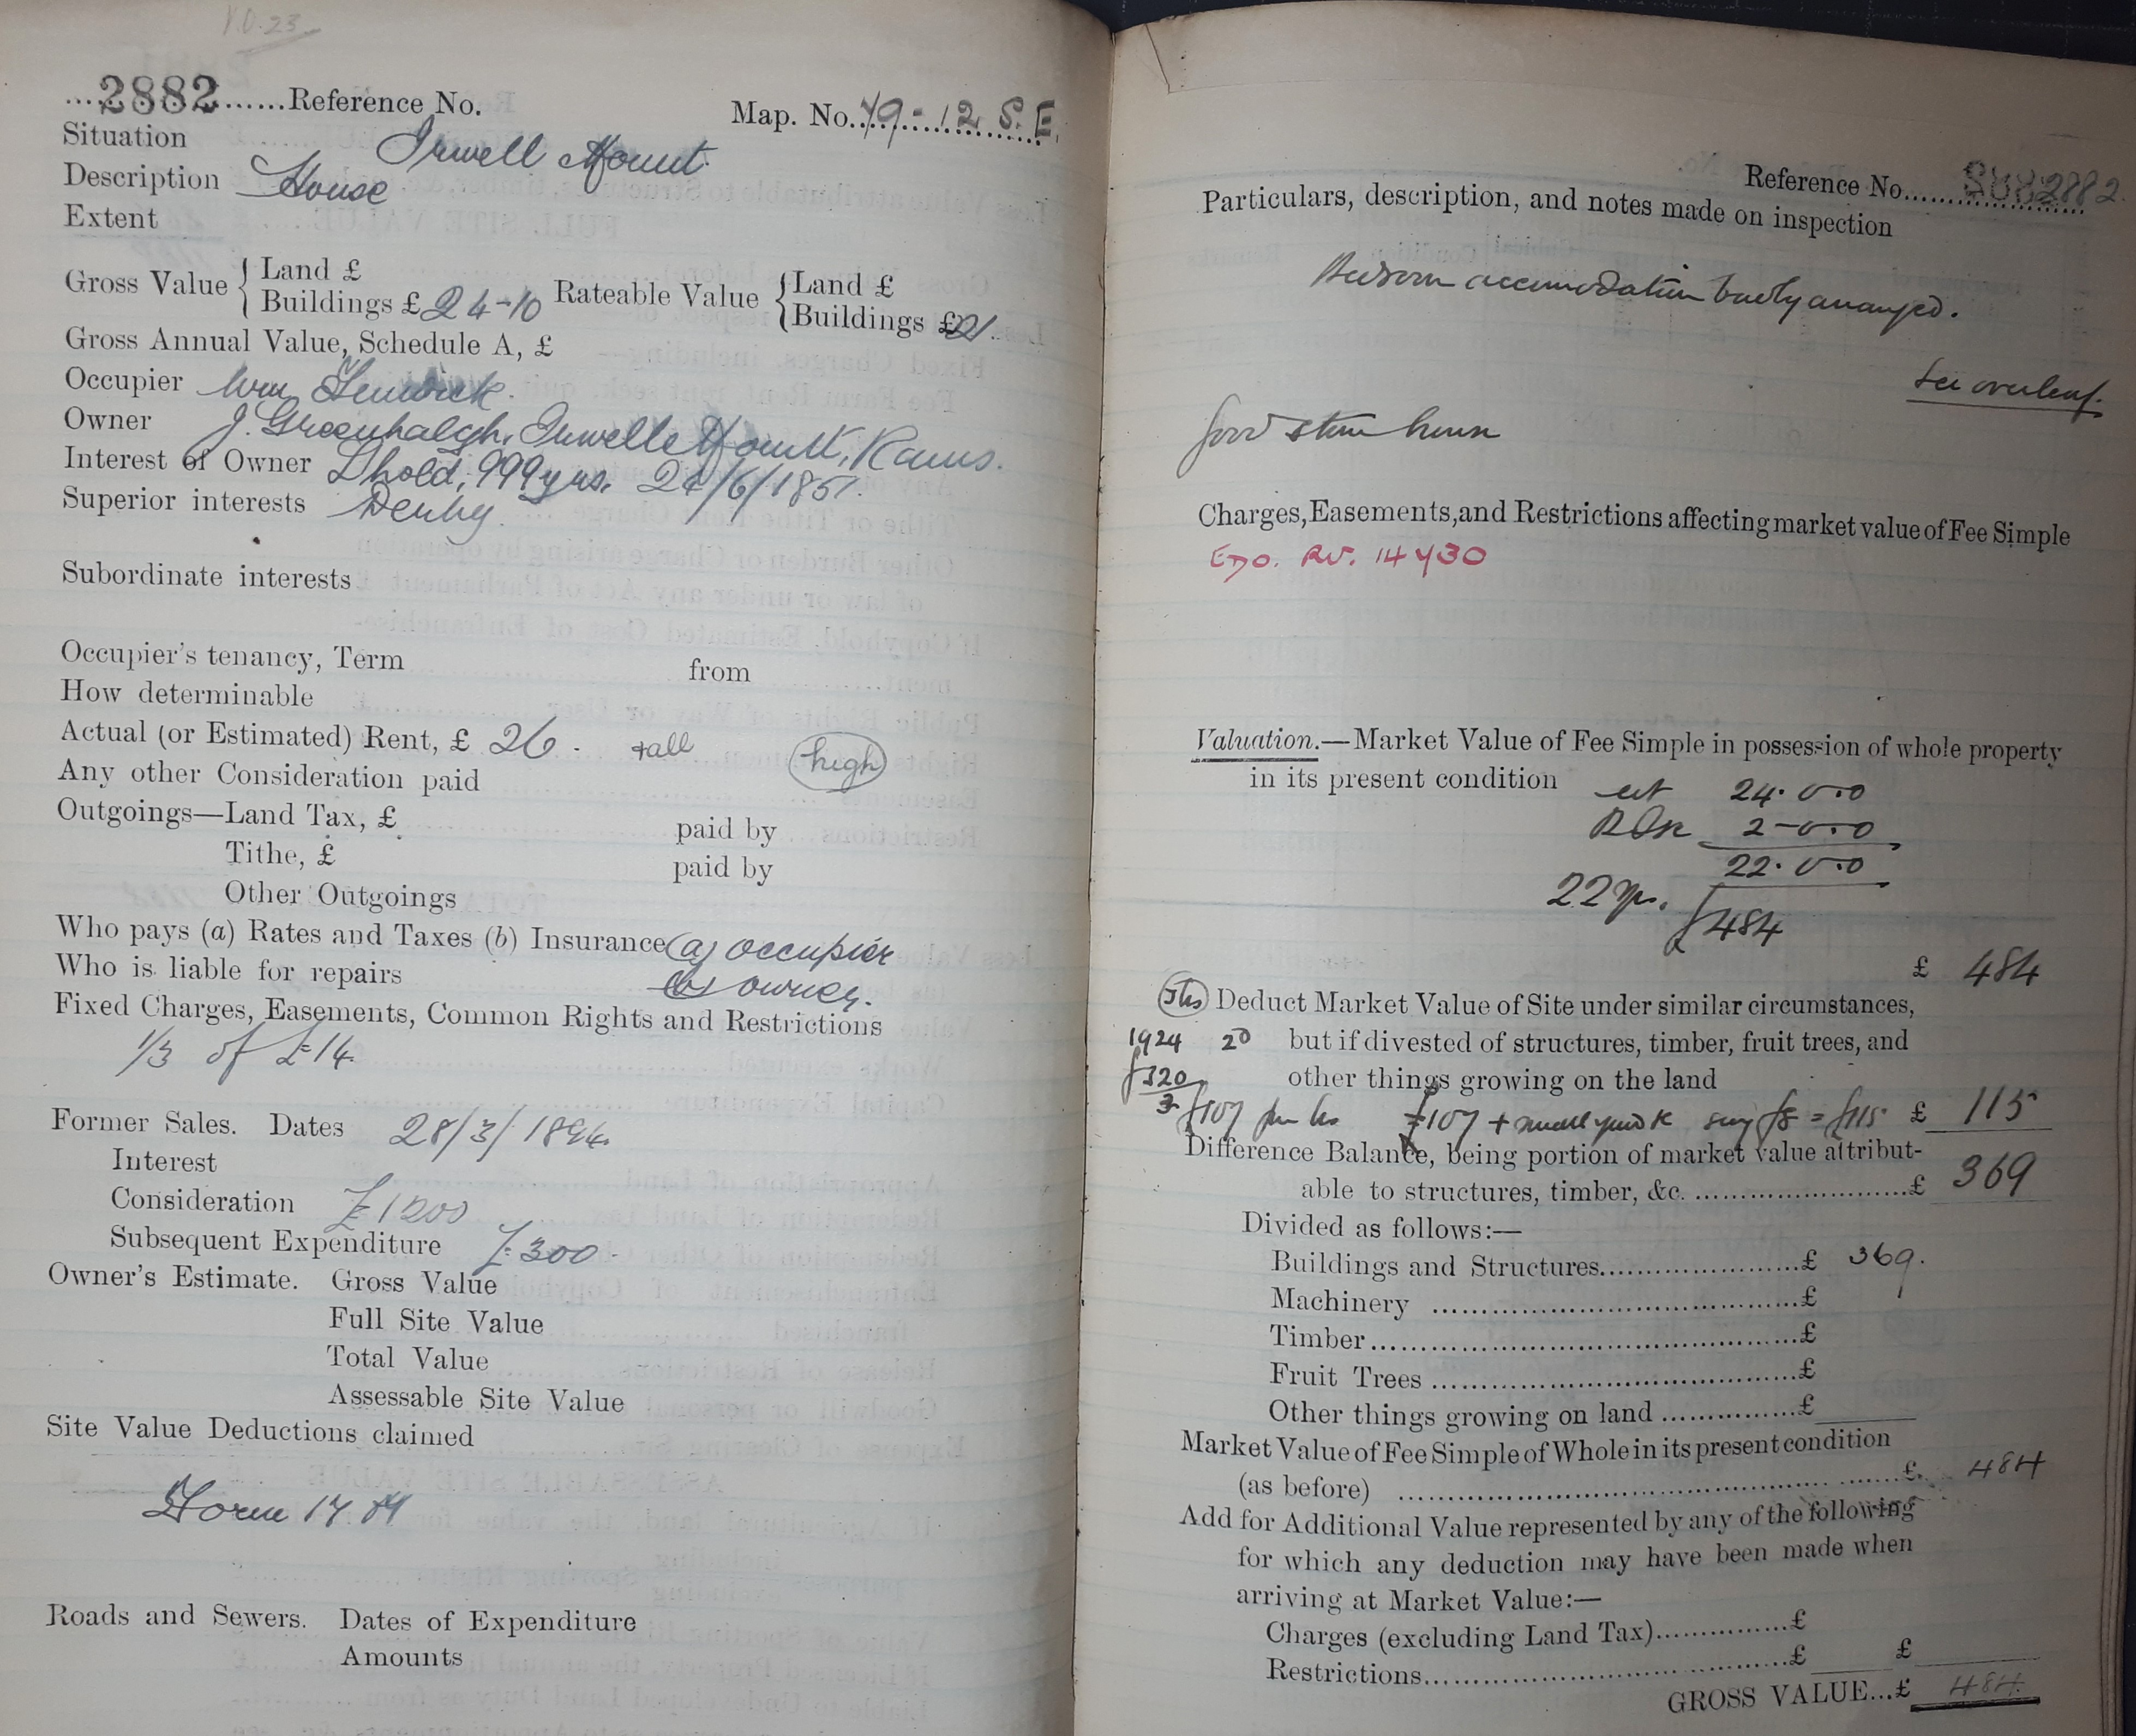 2882 Reference No. Map. No. 79-12 S.E.
Situation Irwell Mount.
Description House
Extent
Gross Value { Land £ Rateable Value { Land £
Buildings £ 24-10 Buildings £ 21.
Gross Annual Value, Schedule A, £
Occupier Wm Fenwick.
Owner J. Greenhalgh, Irwell Mount, Rams.
Interest of Owner Lhold, 999 yrs. 24/6/1857.
Superior interests Denby
Subordinate interests
Occupier's tenancy, Term from
How determinable
Actual (or Estimated) Rent, £ 26. +all high
Any other Consideration paid
Outgoings—Land Tax, £ paid by
Tithe, £ paid by
Other Outgoings
Who pays (a) Rates and Taxes (b) Insurance (a) occupier
Who is liable for repairs (b) owner.
Fixed Charges, Easements, Common Rights and Restrictions
1/3 of £14
Former Sales. Dates 28/3/1894.
Interest
Consideration £1200
Subsequent Expenditure £300-
Owner's Estimate. Gross Value
Full Site Value
Total Value
Assessable Site Value
Site Value Deductions claimed
Form 17
Roads and Sewers. Dates of Expenditure
Amounts
Reference No. 2882.
Particulars, description, and notes made on inspection
Bedroom accomodation badly arranged.
See overleaf.
good stone house
Charges, Easements, and Restrictions affecting market value of Fee Simple
Valuation.—Market Value of Fee Simple in possession of whole property
in its present condition est 24.0.0
2-0.0
22.0.0
22 yrs. £484
£ 484
Deduct Market Value of Site under similar circumstances,
1924 20 but if divested of structures, timber, fruit trees, and
£320 other things growing on the land
3 £107 per hs £107 + small yard say £8 = £115 £ 115
Difference Balance, being portion of market value attribut-
able to structures, timber, &c. £ 369
Divided as follows:—
Buildings and Structures £ 369.
Machinery £
Timber £
Fruit Trees £
Other things growing on land £
Market Value of Fee Simple of Whole in its present condition
(as before) £ 484
Add for Additional Value represented by any of the following
for which any deduction may have been made when
arriving at Market Value:—
Charges (excluding Land Tax) £
Restrictions £ £
GROSS VALUE...£ 484.